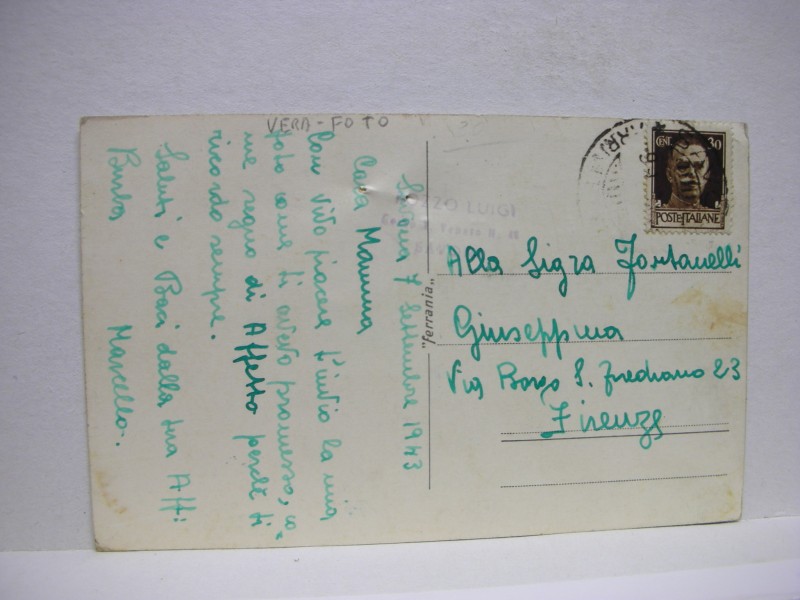 VERA-FOTO
Savona 7 Settembre 1943
Cara Mamma
Con vivo piacere t'invio la mia
foto come ti avevo promesso, co=
me segno di Affetto perchè ti
ricordo sempre.
Saluti e Baci dalla tua Aff:
Marcello.
"ferrania"
LUIGI
CENT. 30
POSTE ITALIANE
Alla Sig.ra Fontanelli
Giuseppina
Via Borgo S. Frediano 23
Firenze